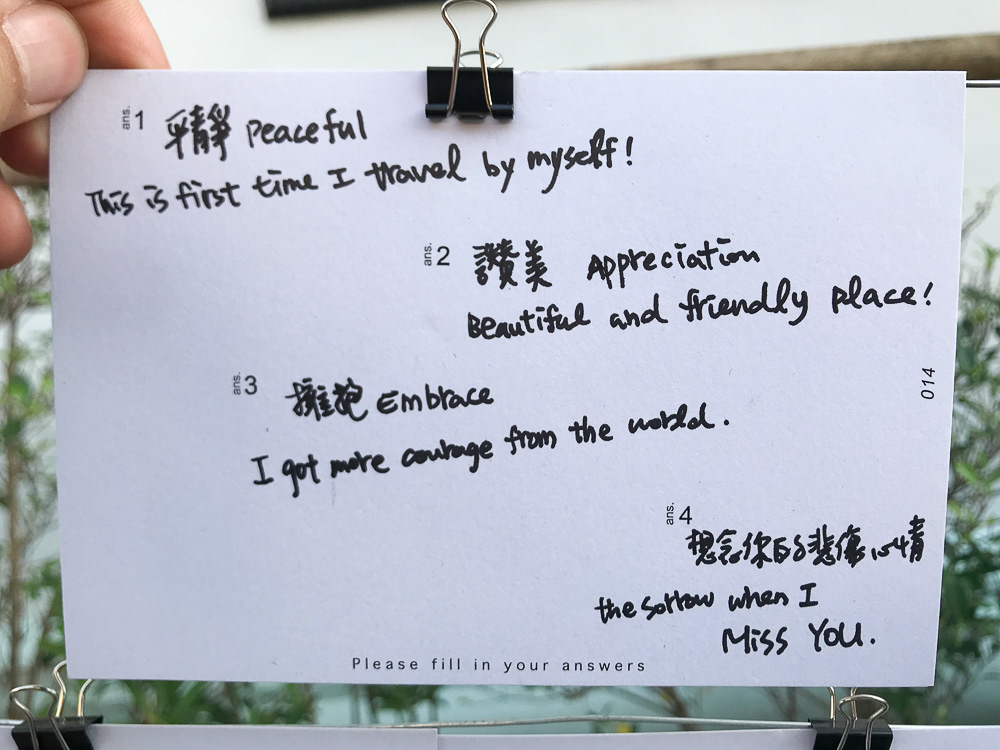 ans. 1 平靜 peaceful
This is first time I travel by myself!
ans. 2 讚美 Appreciation
Beautiful and friendly place!
ans. 3 擁抱 Embrace
I got more courage from the world.
014
ans. 4
想念你的悲傷心情
the sorrow when I
Miss You.
Please fill in your answers